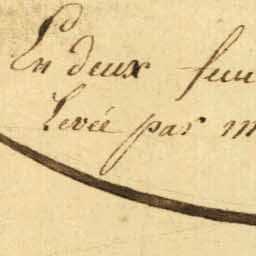 En deux
Levée par m